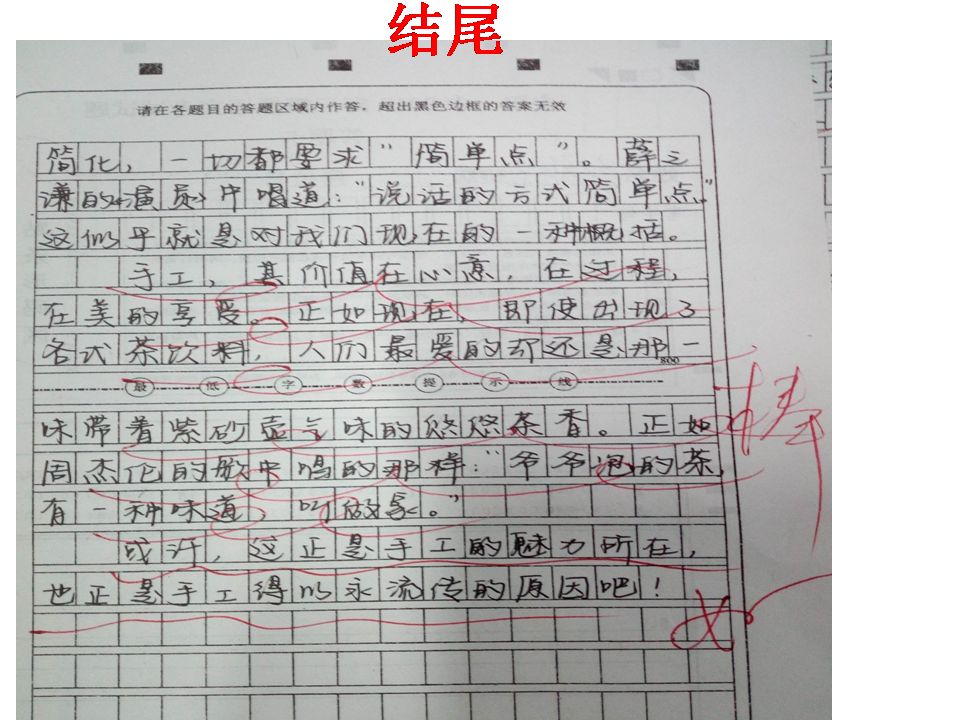 结尾
请在各题目的答题区域内作答，超出黑色边框的答案无效
简化，一切都要求“简单点”。薛之
谦的《演员》中唱道：“说话的方式简单点”
这似乎就是对我们现在的一种概括。
手工，其价值在心意，在过程，
在美的享受。正如现在，即使出现了
各式茶饮料，人们最爱的却还是那一
800
最低字数提示线
味带着紫砂壶气味的悠悠茶香。正如
周杰伦的歌中唱的那样：“爷爷泡的茶，
有一种味道，叫做家。”
或许，这正是手工的魅力所在，
也正是手工得以永流传的原因吧！